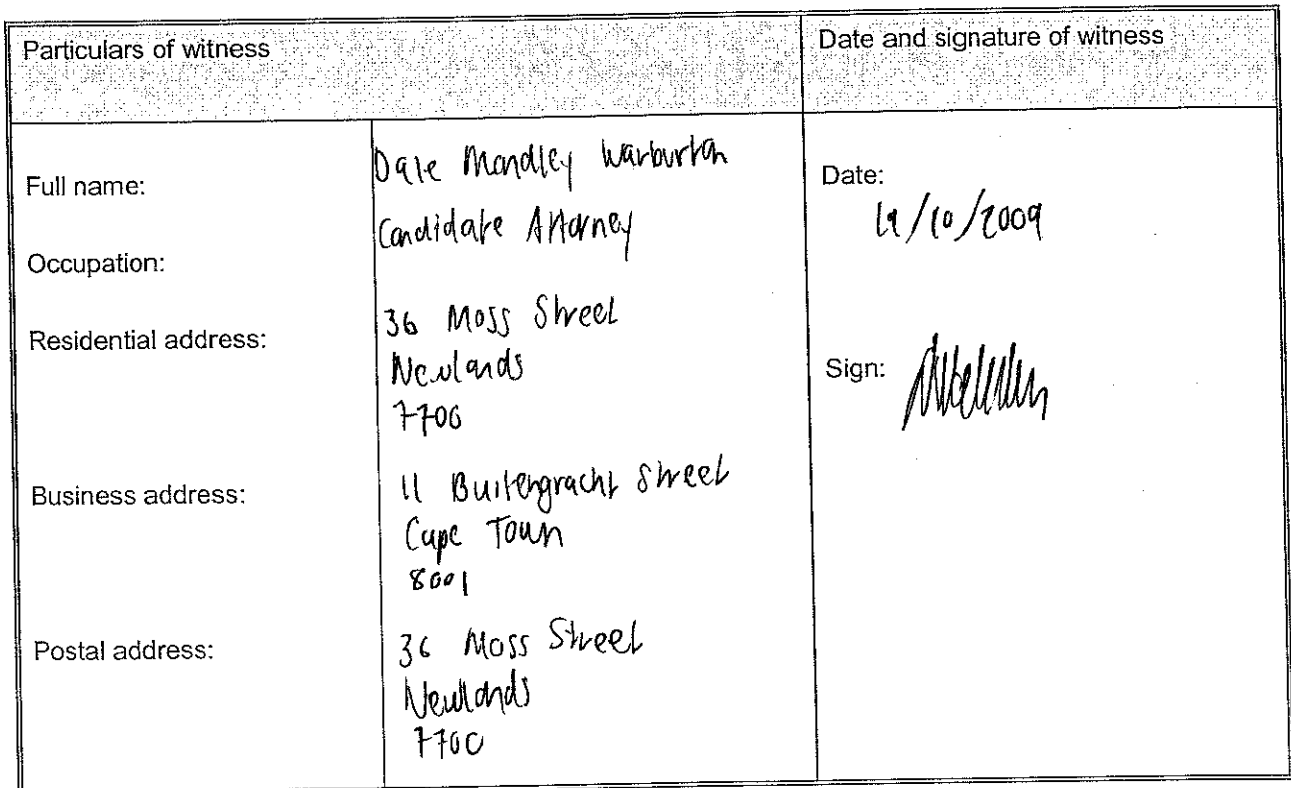 Particulars of witness
Date and signature of witness
Full name:
Dale Mandley Warburton
Occupation:
Candidate Attorney
Residential address:
36 Moss Street
Newlands
7700
Business address:
11 Buitengracht Street
Cape Town
8001
Postal address:
36 Moss Street
Newlands
7700
Date:
19/10/2009
Sign: